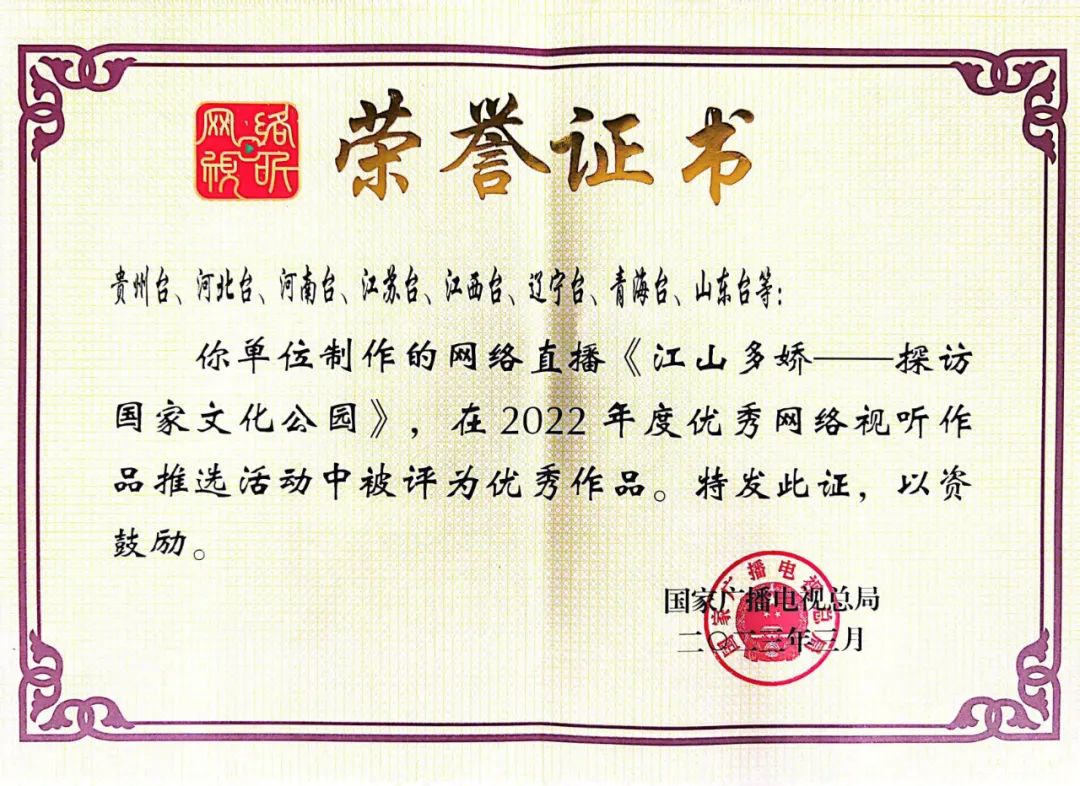 网络
视听
荣誉证书
贵州台、河北台、河南台、江苏台、江西台、辽宁台、青海台、山东台等：
你单位制作的网络直播《江山多娇——探访
国家文化公园》，在2022年度优秀网络视听作
品推选活动中被评为优秀作品。特发此证，以资
鼓励。
国家广播电视总局
二〇二三年三月
国家广播电视总局